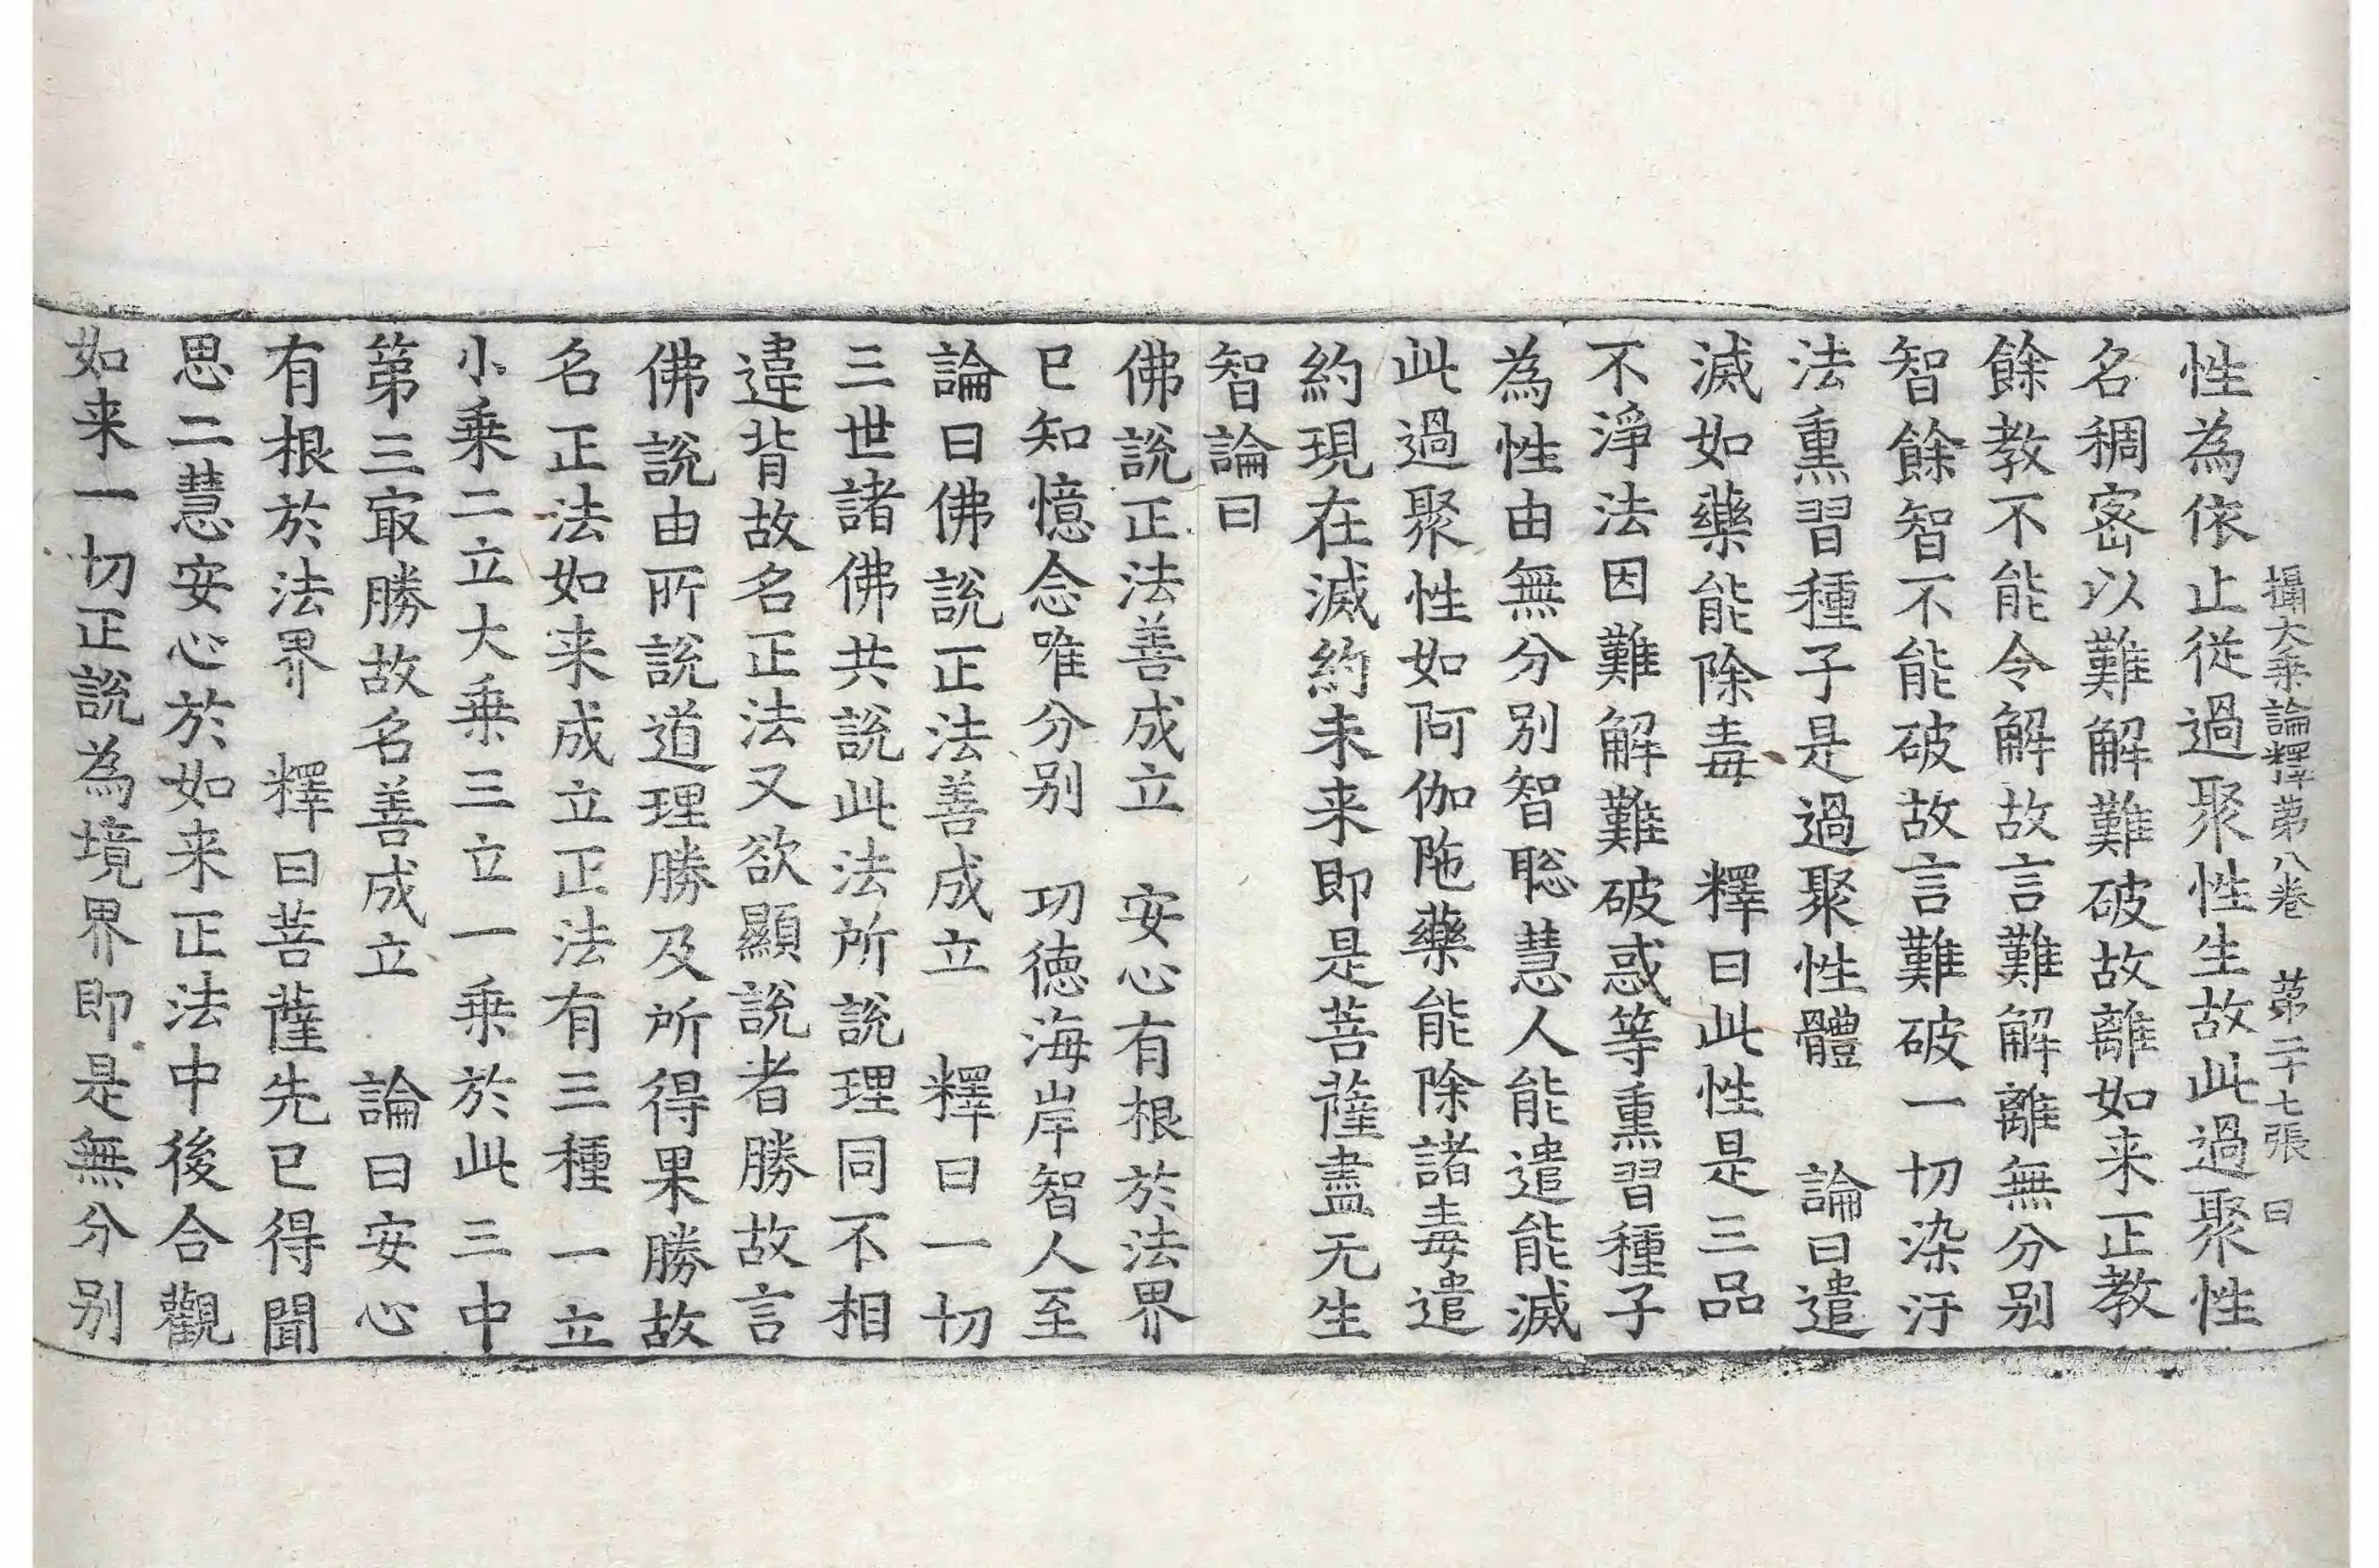 攝大乗論釋第八卷 第二十七張 曰
性為依止従過聚性生故此過聚性
名稠宻以難解難破故離如来正教
餘教不能令解故言難解離無分别
智餘智不能破故言難破一切染汙
法熏習種子是過聚性體 論曰遣
滅如藥能除毒 釋曰此性是三品
不淨法因難解難破惑等熏習種子
為性由無分别智聡慧人能遣能滅
此過聚性如阿伽陁藥能除諸毒遣
約現在滅約未来即是菩薩盡无生
智論曰
佛說正法善成立 安心有根於法界
已知憶念唯分别 功徳海岸智人至
論曰佛說正法善成立 釋曰一切
三世諸佛共說此法所說理同不相
違背故名正法又欲顯說者勝故言
佛說由所說道理勝及所得果勝故
名正法如来成立正法有三種一立
小乗二立大乗三立一乗於此三中
第三㝡勝故名善成立 論曰安心
有根於法界 釋曰菩薩先已得聞
思二慧安心於如来正法中後合觀
如来一切正說為境界即是無分别